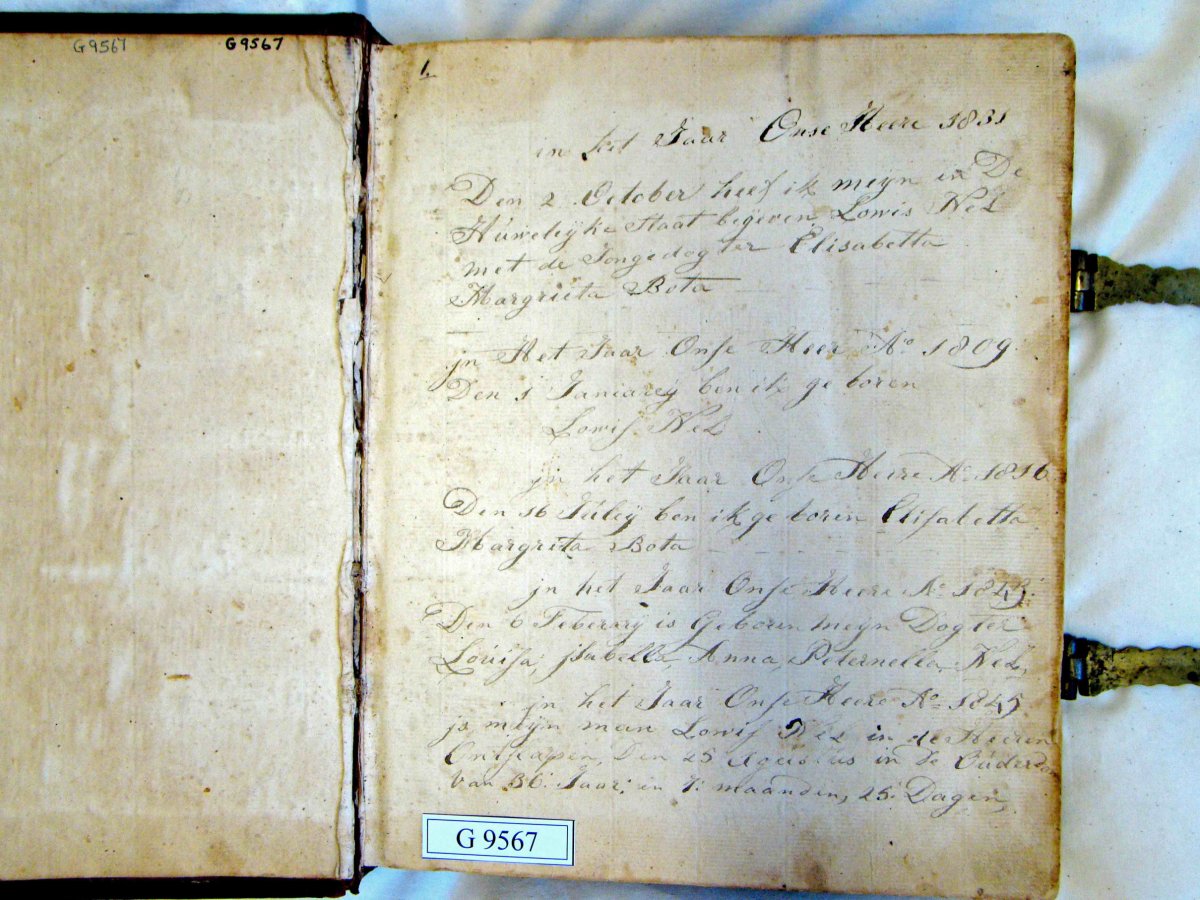 G9567
G9567
1.
in het Jaar Onse Heere 1831
Den 2 October heef ik meijn in De
Huwelijke Staat begeven Lowis Nel
met de Jongedogter Elisabetta
Margrieta Bota
jn Het Jaar Onse Heere Ao 1809
Den 1 Janiarij ben ik ge boren
Lowis Nel
jn het Jaar Onse Heere Ao 1816
Den 16 Juleij ben ik ge boren Elisabetta
Margrieta Bota
jn het Jaar Onse Heere Ao 1843.
Den 6 Feberarij is Geboren meijn Dogter
Louisa, jsabella Anna, Peternella, Nel,
jn het Jaar Onse Heere Ao 1845
js meijn man Lowis Nel in de Heeren
Ontslapen, Den 25 Agustus in de Ouderdom
van 36 Jaar, en 7 maanden, 25 Dagen,
G 9567